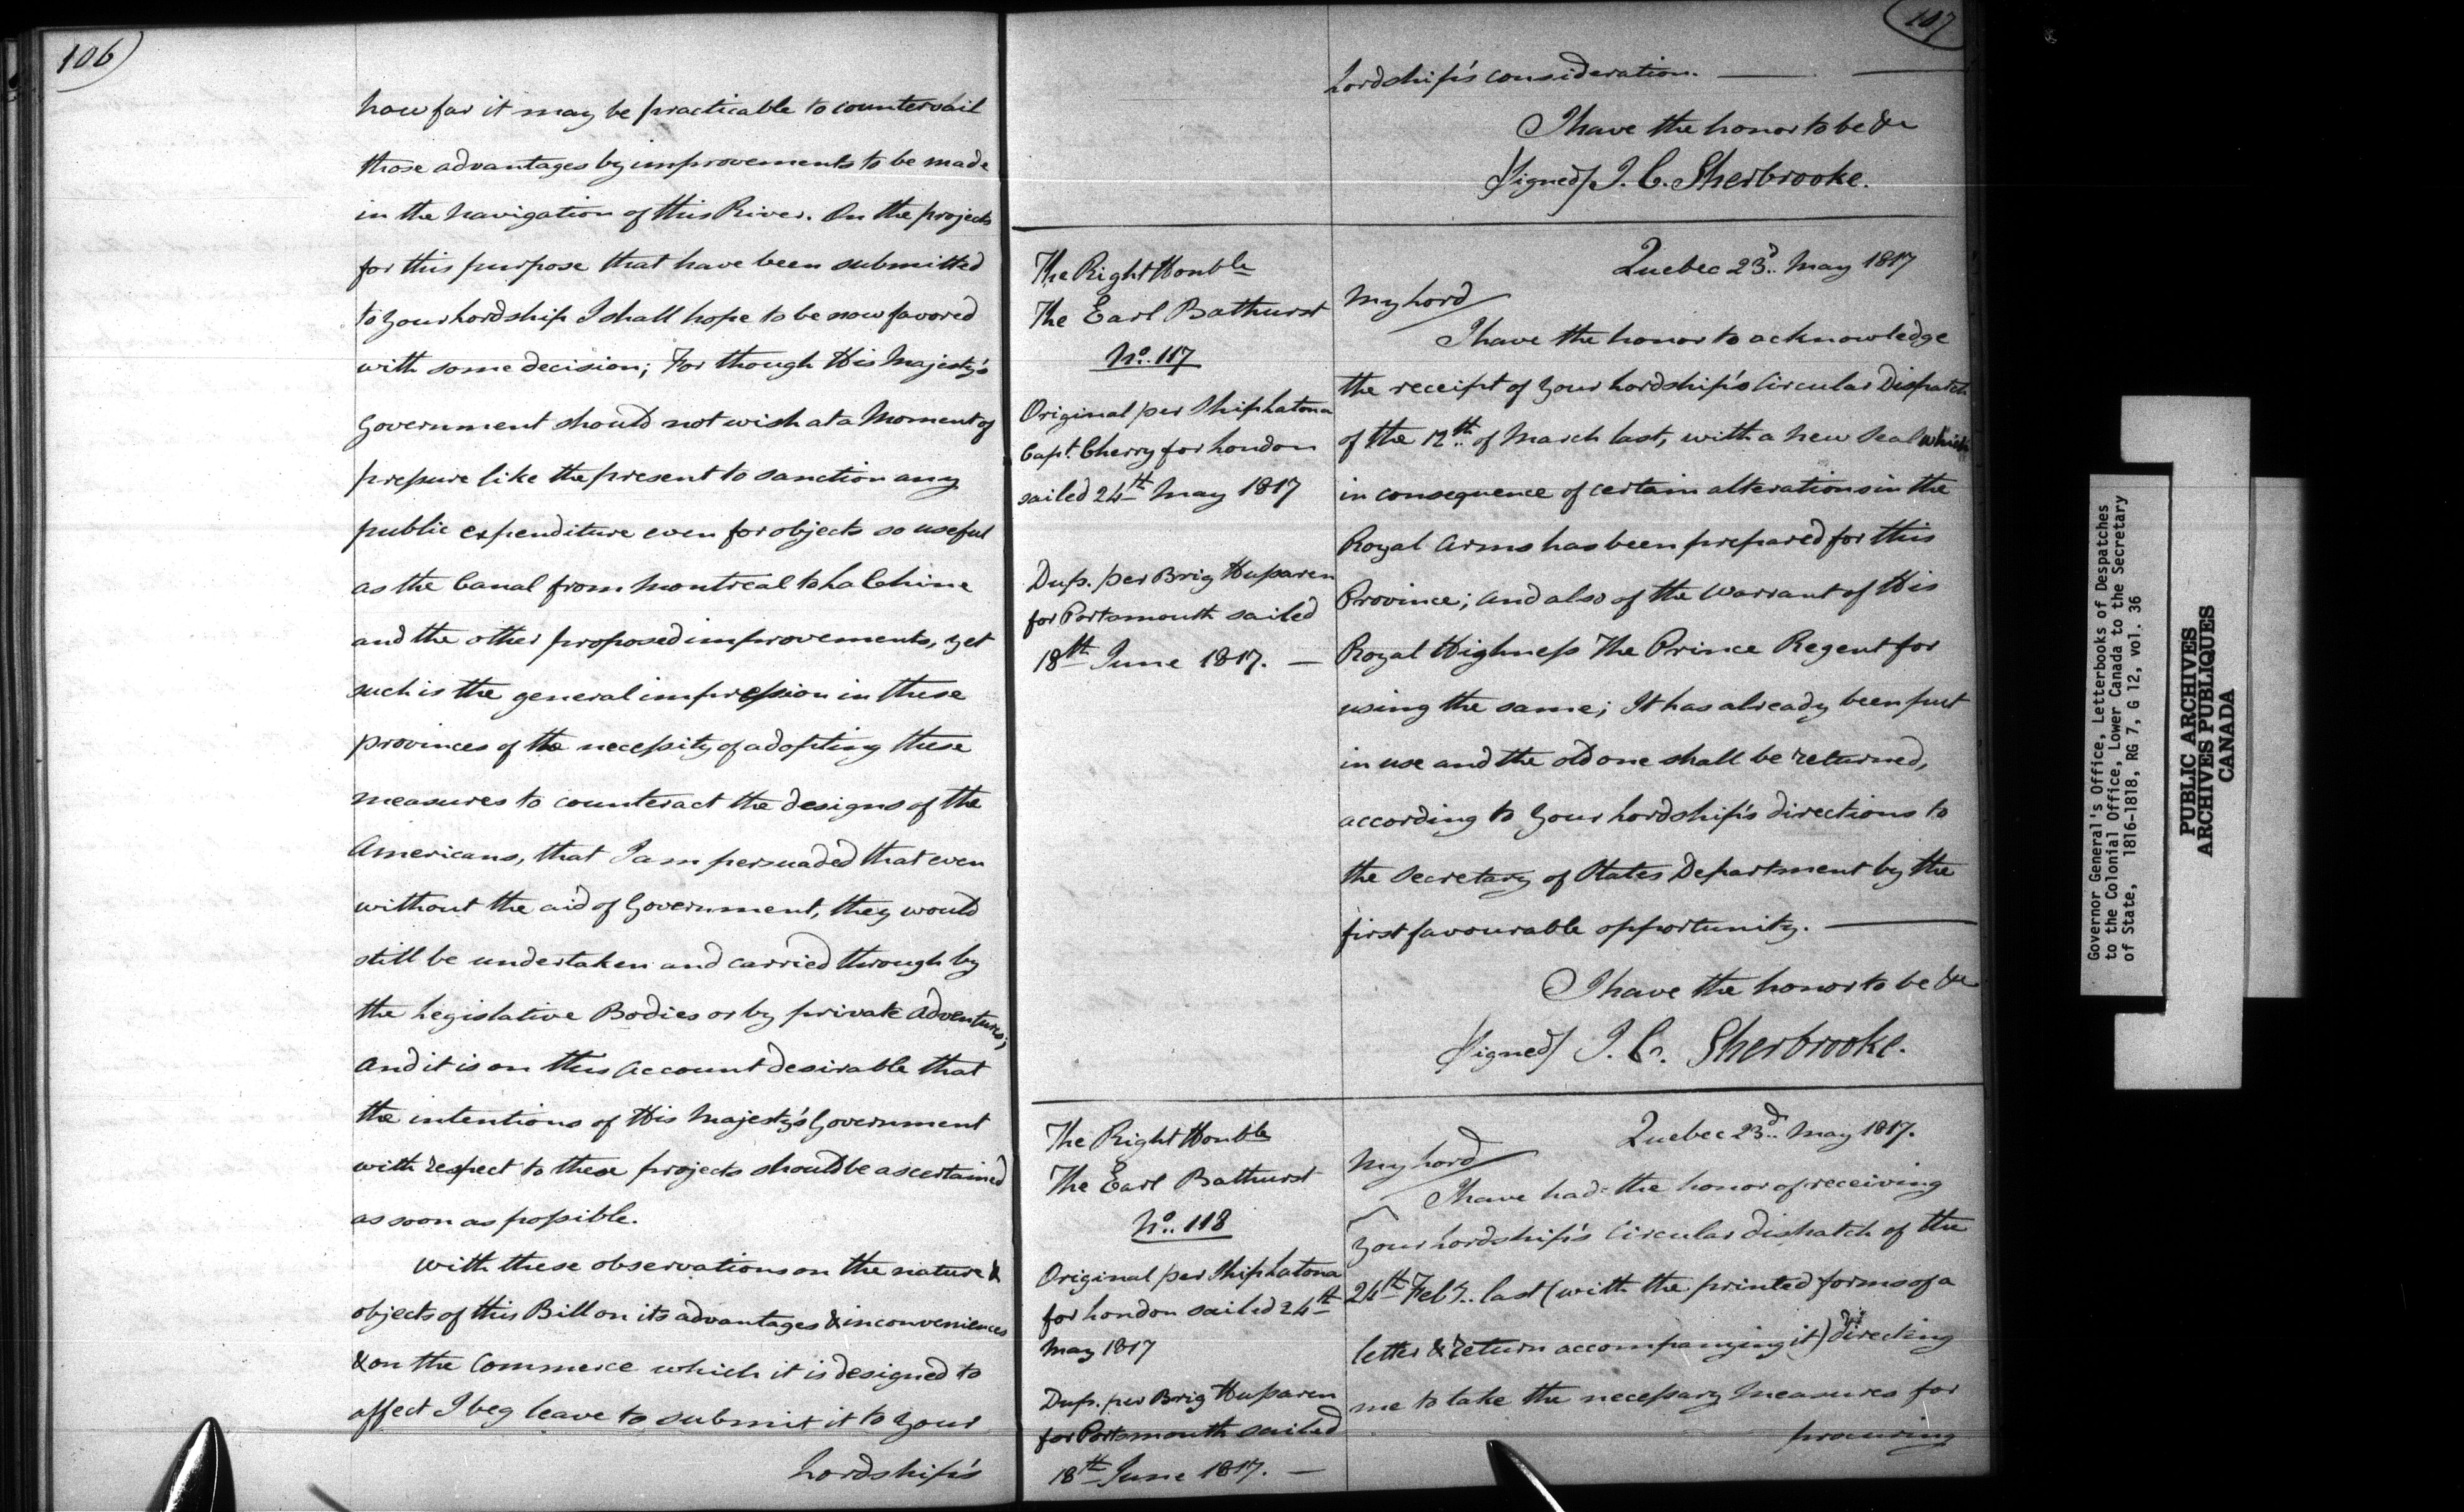 106
how far it may be practicable to countervail
those advantages by improvements to be made
in the navigation of this River. On the projects
for this purpose that have been submitted
to Your Lordship I shall hope to be now favored
with some decision; For though His Majesty's
Government should not wish at a Moment of
pressure like the present to sanction any
public expenditure even for objects so useful
as the Canal from Montreal to La Chine
and the other proposed improvements, yet
such is the general impression in these
provinces of the necessity of adopting these
measures to counteract the designs of the
Americans, that I am persuaded that even
without the aid of Government, they would
still be undertaken and carried through by
the Legislative Bodies or by private adventures;
and it is on this account desirable that
the intentions of His Majesty's Government
with respect to these projects should be ascertained
as soon as possible.
With these observations on the nature &
objects of this Bill on its advantages & inconveniences
& on the Commerce which it is designed to
affect I beg leave to submit it to Your
Lordship's
107
Lordship's consideration.
I have the honor to be &c
(Signed) J. C. Sherbrooke.
The Right Honble
The Earl Bathurst
No. 117
Original per Ship Latona
Capt. Cherry for London
sailed 24th May 1817
Dup. per Brig
for Portsmouth sailed
18th June 1817.
Quebec 23d. May 1817
My Lord
I have the honor to acknowledge
the receipt of Your Lordship's Circular Dispatch
of the 12th of March last, with a new Seal which
in consequence of certain alterations in the
Royal Arms has been prepared for this
Province; and also of the Warrant of His
Royal Highness The Prince Regent for
using the same; It has already been put
in use and the old one shall be returned,
according to Your Lordship's directions to
the Secretary of States Department by the
first favourable opportunity.
I have the honor to be &c
(Signed) J. C. Sherbrooke.
The Right Honble
The Earl Bathurst
No. 118
Original per Ship Latona
for London sailed 24th
May 1817
Dup. per Brig
for Portsmouth sailed
18th June 1817.
Quebec 23d. May 1817.
My Lord
I have had the honor of receiving
Your Lordship's Circular dispatch of the
24th Feby. last (with the printed forms of a
letter & return accompanying it) directing
me to take the necessary measures for
procuring
Governor General's Office, Letterbooks of Despatches
to the Colonial Office, Lower Canada to the Secretary
of State, 1816-1818, RG 7, G 12, vol. 36
PUBLIC ARCHIVES
ARCHIVES PUBLIQUES
CANADA